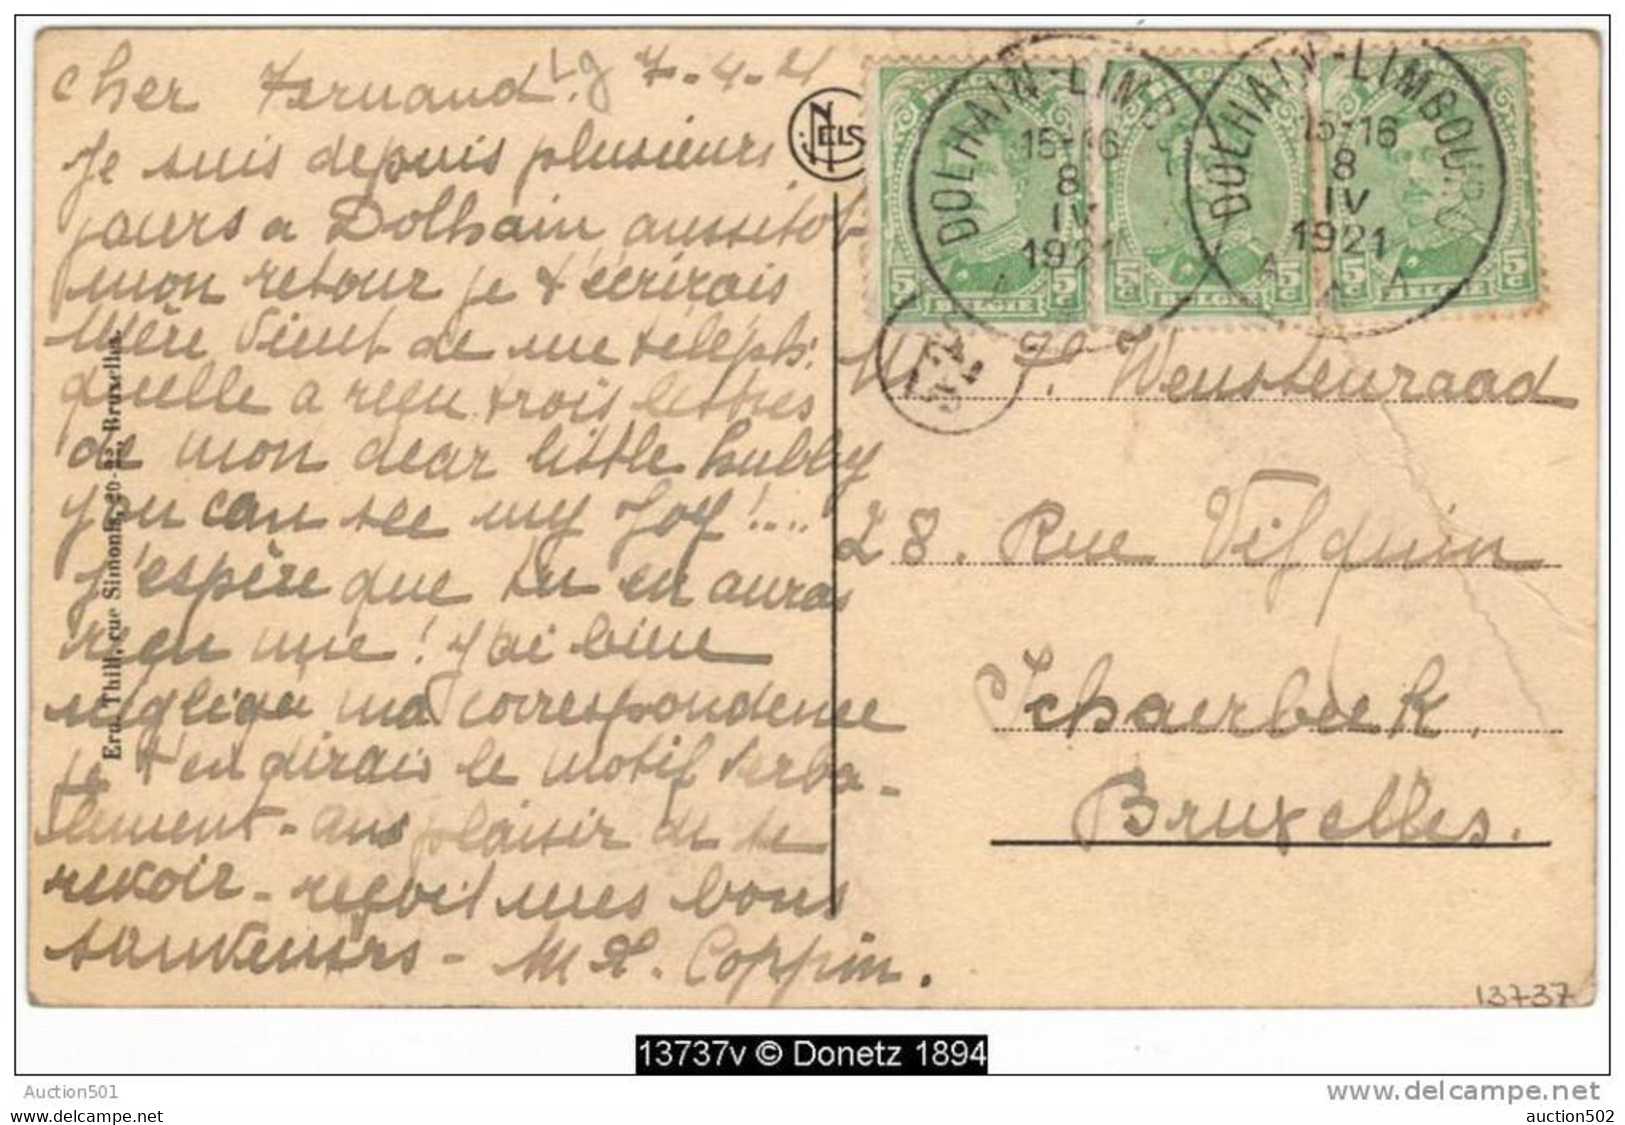 cher Fernand. Lg 7-4-21
Je suis depuis plusieurs
jours a Dolhain aussitot
mon retour je t'écrirais
Mère vient de me téléph:
quelle a reçu trois lettres
de mon dear little hubby
you can see my Joy!....
j'espère que tu en auras
reçu une! J'ai bien
negligé ma correspondense
je t'en dirais le motif verba-
lement - au plaisir de te
revoir - reçoit mes bons
souvenirs - M Coppin.
Ern. Thill, rue Simonis, 20-22, Bruxelles.
NELS
DOLHAIN-LIMB
15-16
8
IV
1921
DOLHAIN-LIMBOURG
15-16
8
IV
1921
A A
5c BELGIE 5c
5c BELGIE 5c
5c BELGIE 5c
M. F. Weustenraad
28. Rue Vifquin
Schaerbeek.
Bruxelles.
13737
13737v © Donetz 1894
Auction501
www.delcampe.net
auction502
auction502